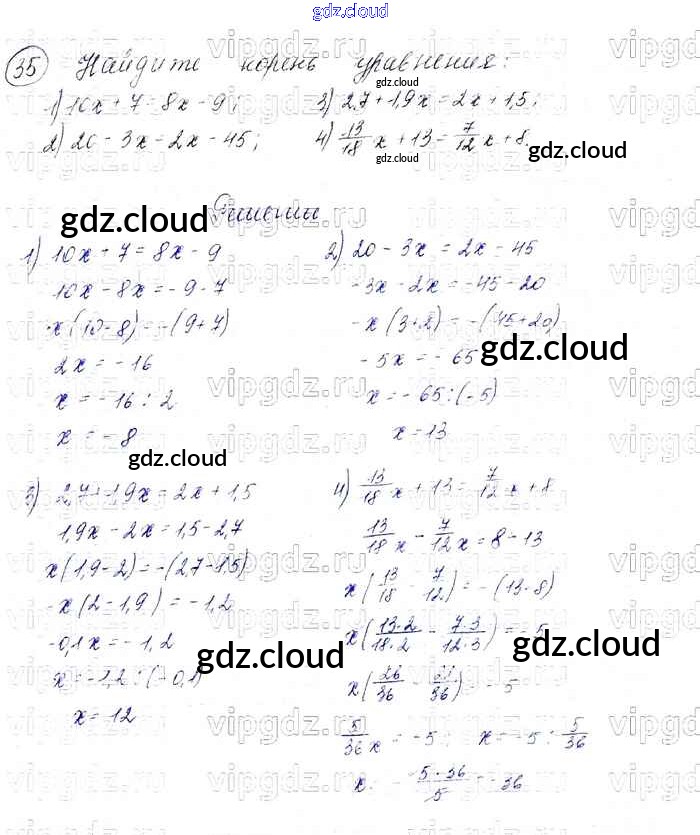 gdz.cloud
35 Найдите корень уравнения:
1) 10x + 7 = 8x - 9; 3) 2,7 + 1,9x = 2x + 1,5;
2) 20 - 3x = 2x - 45; 4) 13/18 x + 13 = 7/12 x + 8.
Решение
1) 10x + 7 = 8x - 9
10x - 8x = - 9 - 7
x(10 - 8) = -(9 + 7)
2x = - 16
x = - 16 : 2
x = - 8
2) 20 - 3x = 2x - 45
- 3x - 2x = - 45 - 20
- x(3+2) = -(45+20)
- 5x = - 65
x = - 65 : (- 5)
x = 13
3) 2,7 + 1,9x = 2x + 1,5
1,9x - 2x = 1,5 - 2,7
x(1,9 - 2) = -(2,7 - 1,5)
- x(2 - 1,9) = - 1,2
- 0,1x = - 1,2
x = - 1,2 : (- 0,1)
x = 12
4) 13/18 x + 13 = 7/12 x + 8
13/18 x - 7/12 x = 8 - 13
x(13/18 - 7/12) = - (13 - 8)
x(13·2/18·2 - 7·3/12·3) = - 5
x(26/36 - 21/36) = - 5
5/36 x = - 5; x = - 5 : 5/36
x = - 5·36/5 = - 36
gdz.cloud
gdz.cloud
gdz.cloud
gdz.cloud
gdz.cloud
gdz.cloud
gdz.cloud
gdz.cloud
gdz.cloud